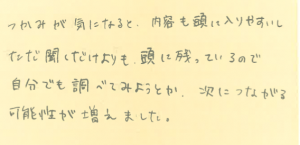 つかみが気になると、内容も頭に入りやすいし
ただ聞くだけよりも、頭に残っているので
自分でも調べてみようとか、次につながる
可能性が増えました。